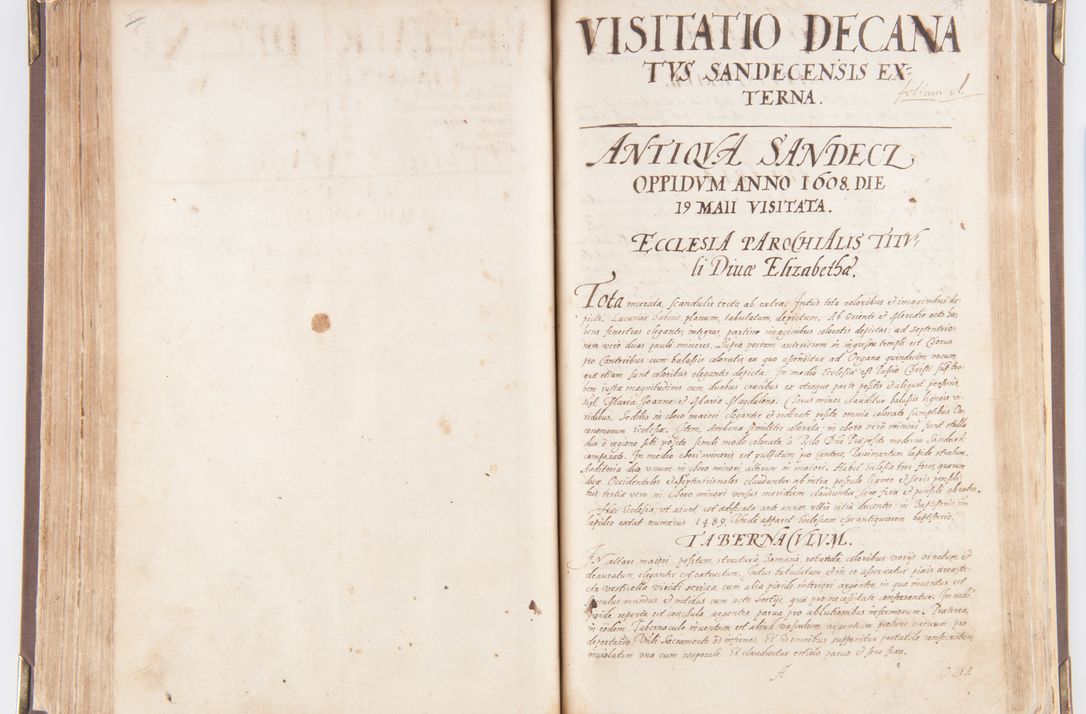 VISITATIO DECANA
TVS SANDECENSIS EX=
TERNA.
folium A
ANTIQVA SANDECZ
OPPIDVM ANNO 1608. DIE
19 MAII VISITATA.
ECCLESIA PAROCHIALIS TITV-
li Diuæ Elizabethæ.
Tota murata, scandulis tecta ab extra. Intus tota coloribus et imaginibus de
picta. Lacunar habens planum, tabulatum, depictum. Ab Oriente et Meridie octo ha
bens fenestras elegantes, integras, partim imaginibus coloratis depictas: ad septentrio-
nem verò duas paulò minores. Supra portam anteriorem in ingressu templi est Chorus
pro Cantoribus cum balassis coloratis, ex quo ascenditur ad Organa quindecim vocum
quæ etiam sunt coloribus eleganter depicta. In medio Ecclesiæ est Passio Christi sub tra
bem iustæ magnitudinis cum duabus crucibus ex utraque parte positis et aliquot personis,
scil. Maria, Joanne et Maria Magdalena. Chorus minor clauditur balassis ligneis vi-
ridibus. Sedilia in choro maiori eleganter et ordinatè posita omnia colorata sumptibus Oe-
conomorum Ecclesiæ. Item, Ambona similiter colorata: in choro verò minori sunt stalla
duo è regione sibi posita simili modo colorata, à Rdo Dno Præposito moderno Sandecen
comparata. In medio chori minoris est pulpitum pro cantore, Pavimentum lapide stratum.
Auditoria duo, unum in choro minori, alterum in maiori. Habet Ecclesia tres fores, quarum
duæ Occidentales et Septentrionales clauduntur ab intra pessulo ligneo et seris pensili-
bus, tertiæ vero in Choro minori versus meridiem clauduntur sera fixa et pensili ab extra.
Hæc Ecclesia, ut aiunt, est ædificata ante annos ultra citra ducentos: in Baptisterio
lapideo extat numerus 1489. Unde apparet Ecclesiam esse antiquiorem baptisterio.
TABERNACVLVM.
IN altari maiori positum, structura Romana rotunda, coloribus varijs ornatum et
deauratum eleganter est extructum. Intus tabulatum et in eo asservatur pixis
cta vesticella viridi sericea, cum alia pixide interiori argentea, in qua inventus est
loculus mundus et nitidus cum octo hostijs, quæ pro necessitate conservantur. In eadem
pixide reperta est capsula argentea parva pro ablutionibus infirmorum. Præterea,
in eodem Tabernaculo inventum est aliud vasculum argenteum pro
deportando Vbli Sacramento ad infirmos. Et his omnibus supponitur portatile consecratum
inviolatum una cum corporali. Et clauditur ostiolo parvo et sera fixa.
A